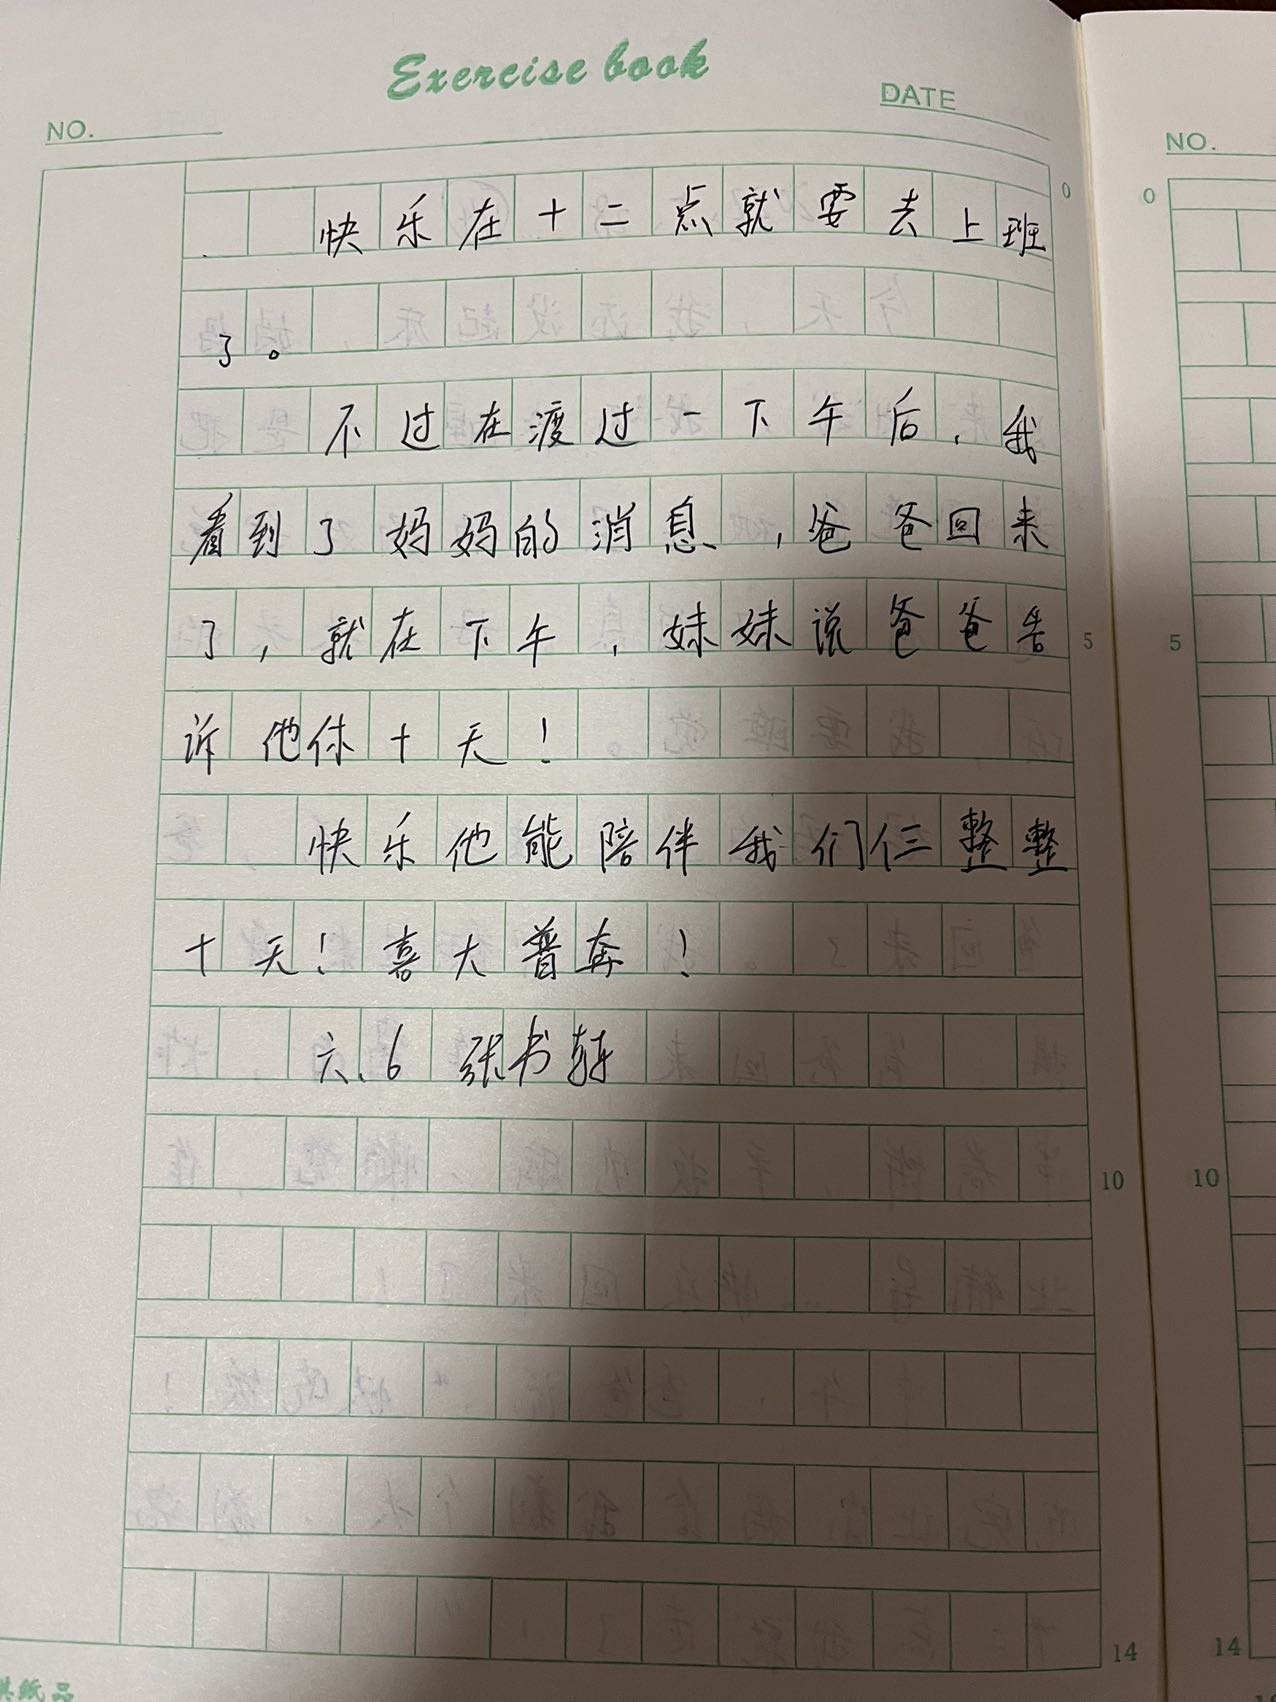 Exercise book
DATE
NO.
NO.
快乐在十二点就要去上班
了。
不过在渡过一下午后,我
看到了妈妈的消息,爸爸回来
了,就在下午,妹妹说爸爸告
诉他休十天!
快乐他能陪伴我们仨整整
十天!喜大普奔!
六.6 张书轩
0
0
5
5
10
10
14
14
纸品